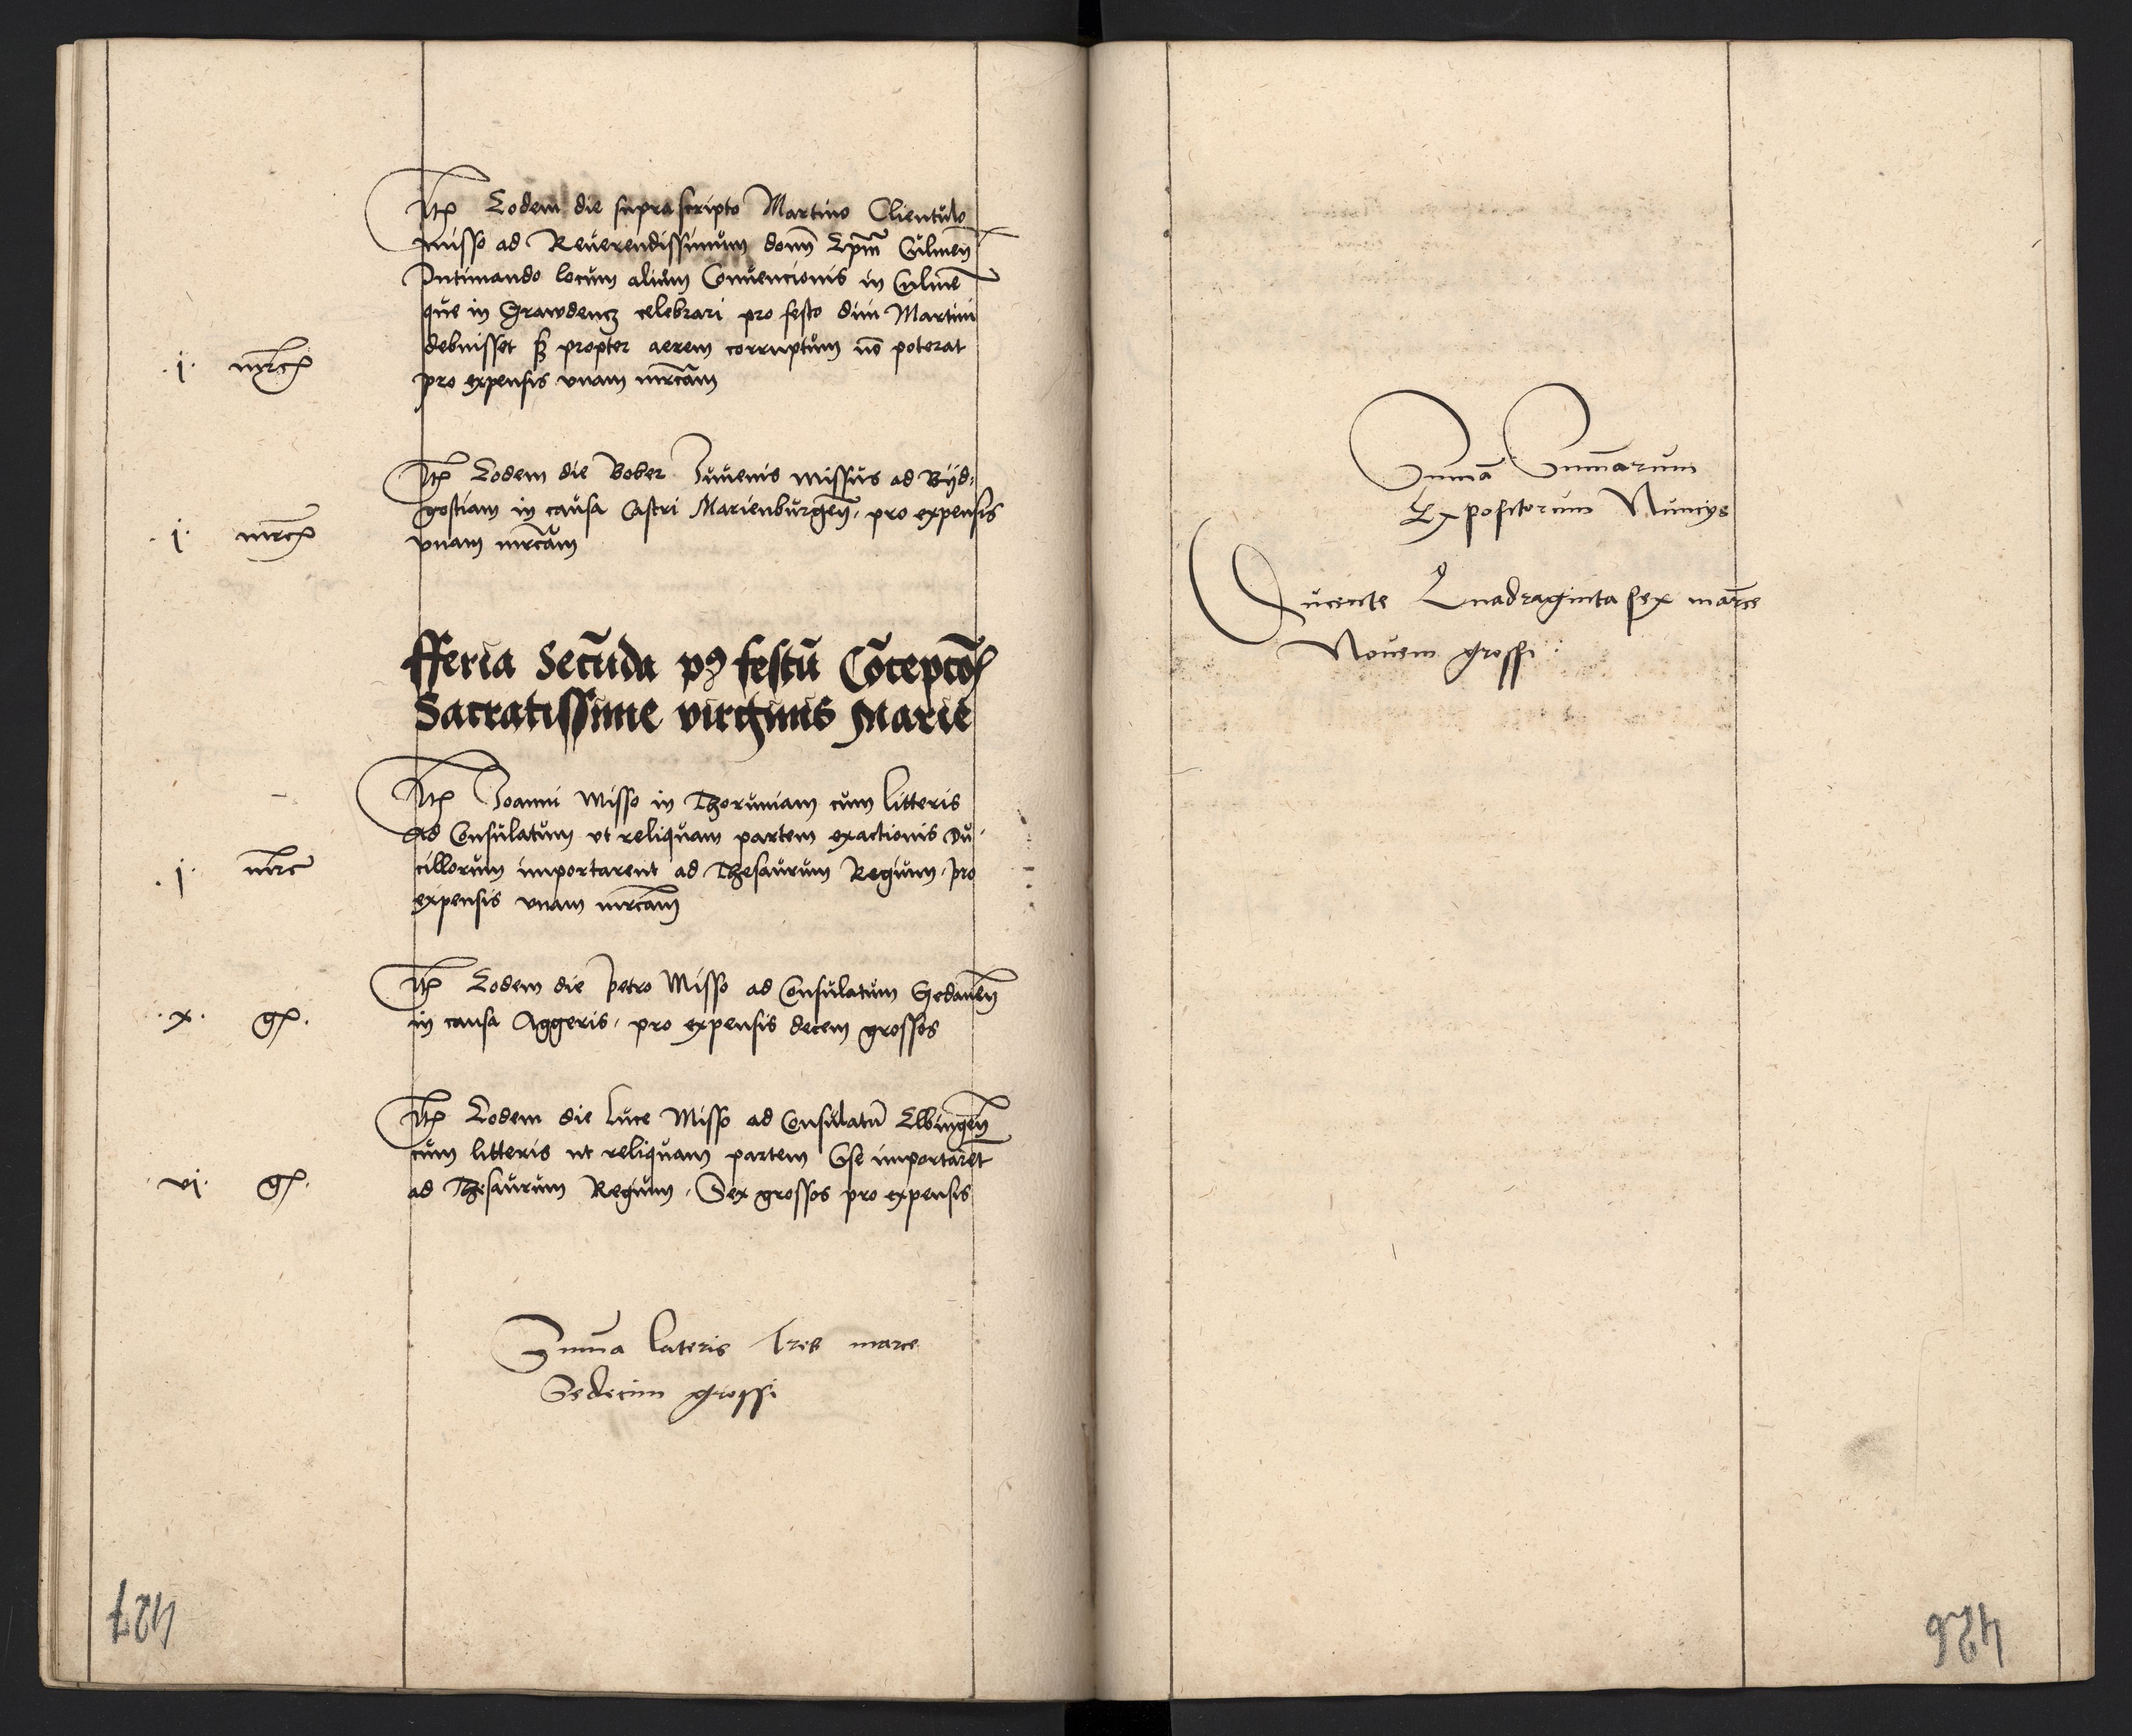 Itẽ Eodem die suprascripto Martino Clientulo
misso ad Reuerendissimum domĩ Epm̃ Culmeñ
Intimando locum alium Conuencionis in Culmẽ
que in Grawdencz celebrari pro festo diui Martini
debuisset sz propter aerem corruptum nõ poterat
.j. mrcẽ pro expensis vnam mrcam
Itẽ Eodem die Bober Juuenis missus ad Byd-
gostiam in causa Castri Marienburgeñ, pro expensis
.j. mrcẽ vnam mrcam
fferia Secũda p9 festũ Cõcepcõ
Sacratissime virginis Marie
Itẽ Joanni Misso in Thoruniam cum litteris
ad Consulatum vt reliquam partem exactionis Du-
.j. mrc cillorum importarent ad Thesaurum Regium, pro
expensis vnam mrcam
Itẽ Eodem die Petro Misso ad Consulatum Gedaneñ
.x. g. in causa Aggeris, pro expensis decem grossos
Itẽ Eodem die Luce Misso ad Consulatũ Elbingeñ
cum litteris ut reliquam partem importaret
.vi. g. ad Thesaurum Regium, Sex grossos pro expensis
Summa lateris Tres marce
Sedecim grossi
427
Summa Summarum
Expositorum Nuncys
Ducente Quadraginta sex marce
Nouem grossi
426